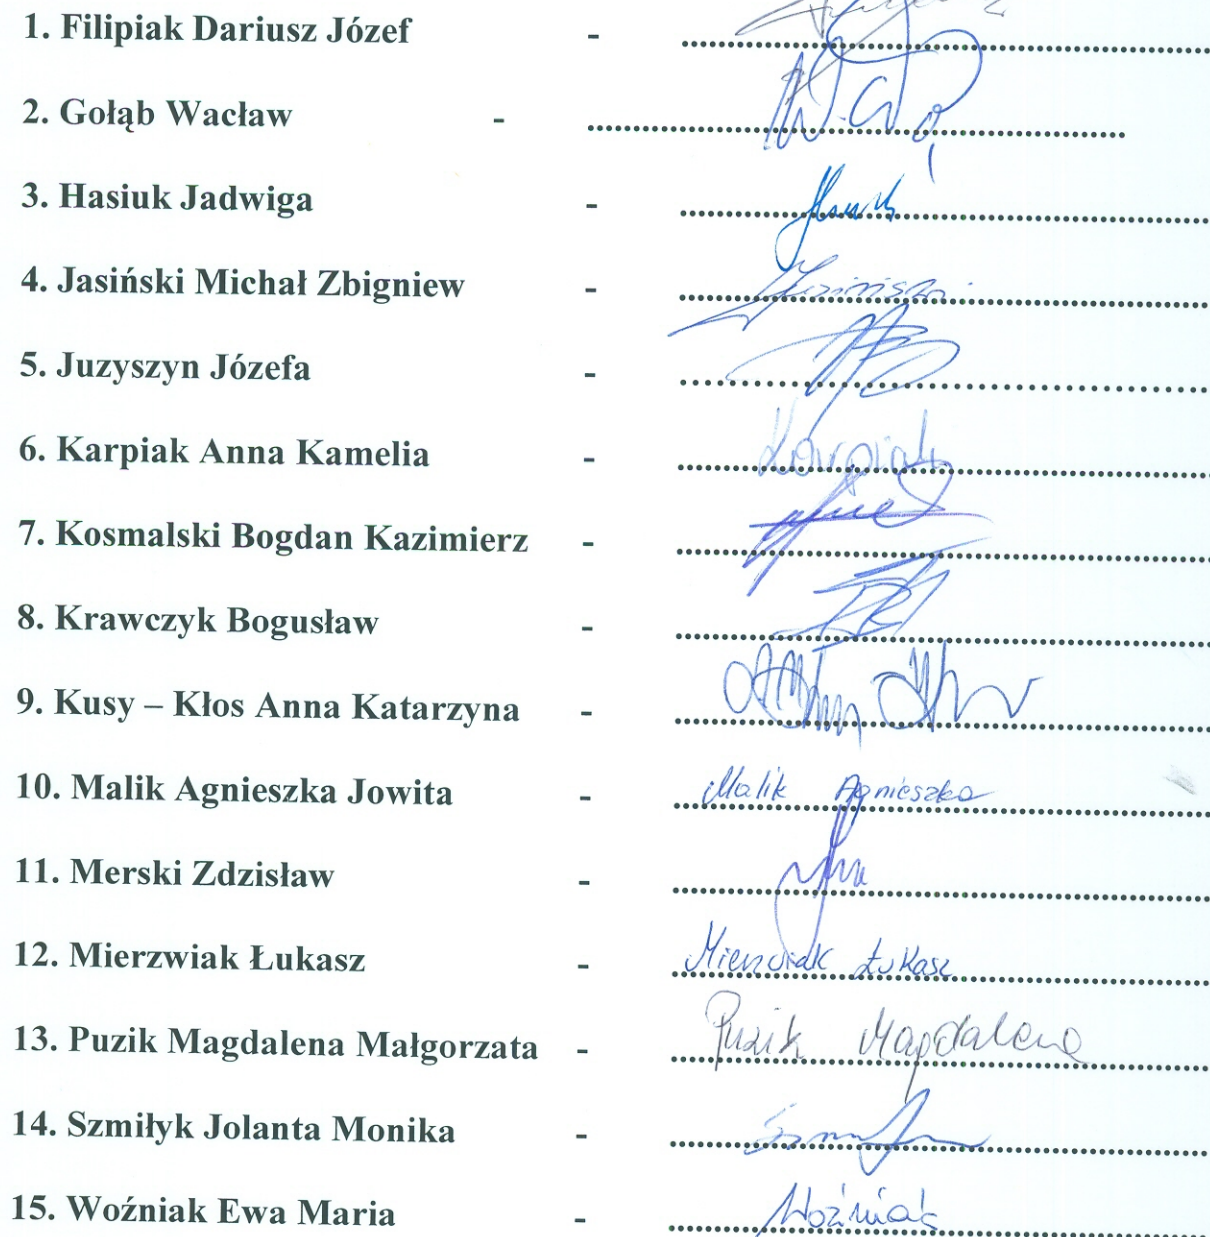 1. Filipiak Dariusz Józef - ........................................
2. Gołąb Wacław - ........................................
3. Hasiuk Jadwiga - ........................................
4. Jasiński Michał Zbigniew - ........................................
5. Juzyszyn Józefa - ........................................
6. Karpiak Anna Kamelia - Karpiak
7. Kosmalski Bogdan Kazimierz - ........................................
8. Krawczyk Bogusław - ........................................
9. Kusy – Kłos Anna Katarzyna - ........................................
10. Malik Agnieszka Jowita - Malik Agnieszka
11. Merski Zdzisław - ........................................
12. Mierzwiak Łukasz - Mierzwiak Łukasz
13. Puzik Magdalena Małgorzata - Puzik Magdalena
14. Szmiłyk Jolanta Monika - ........................................
15. Woźniak Ewa Maria - Woźniak